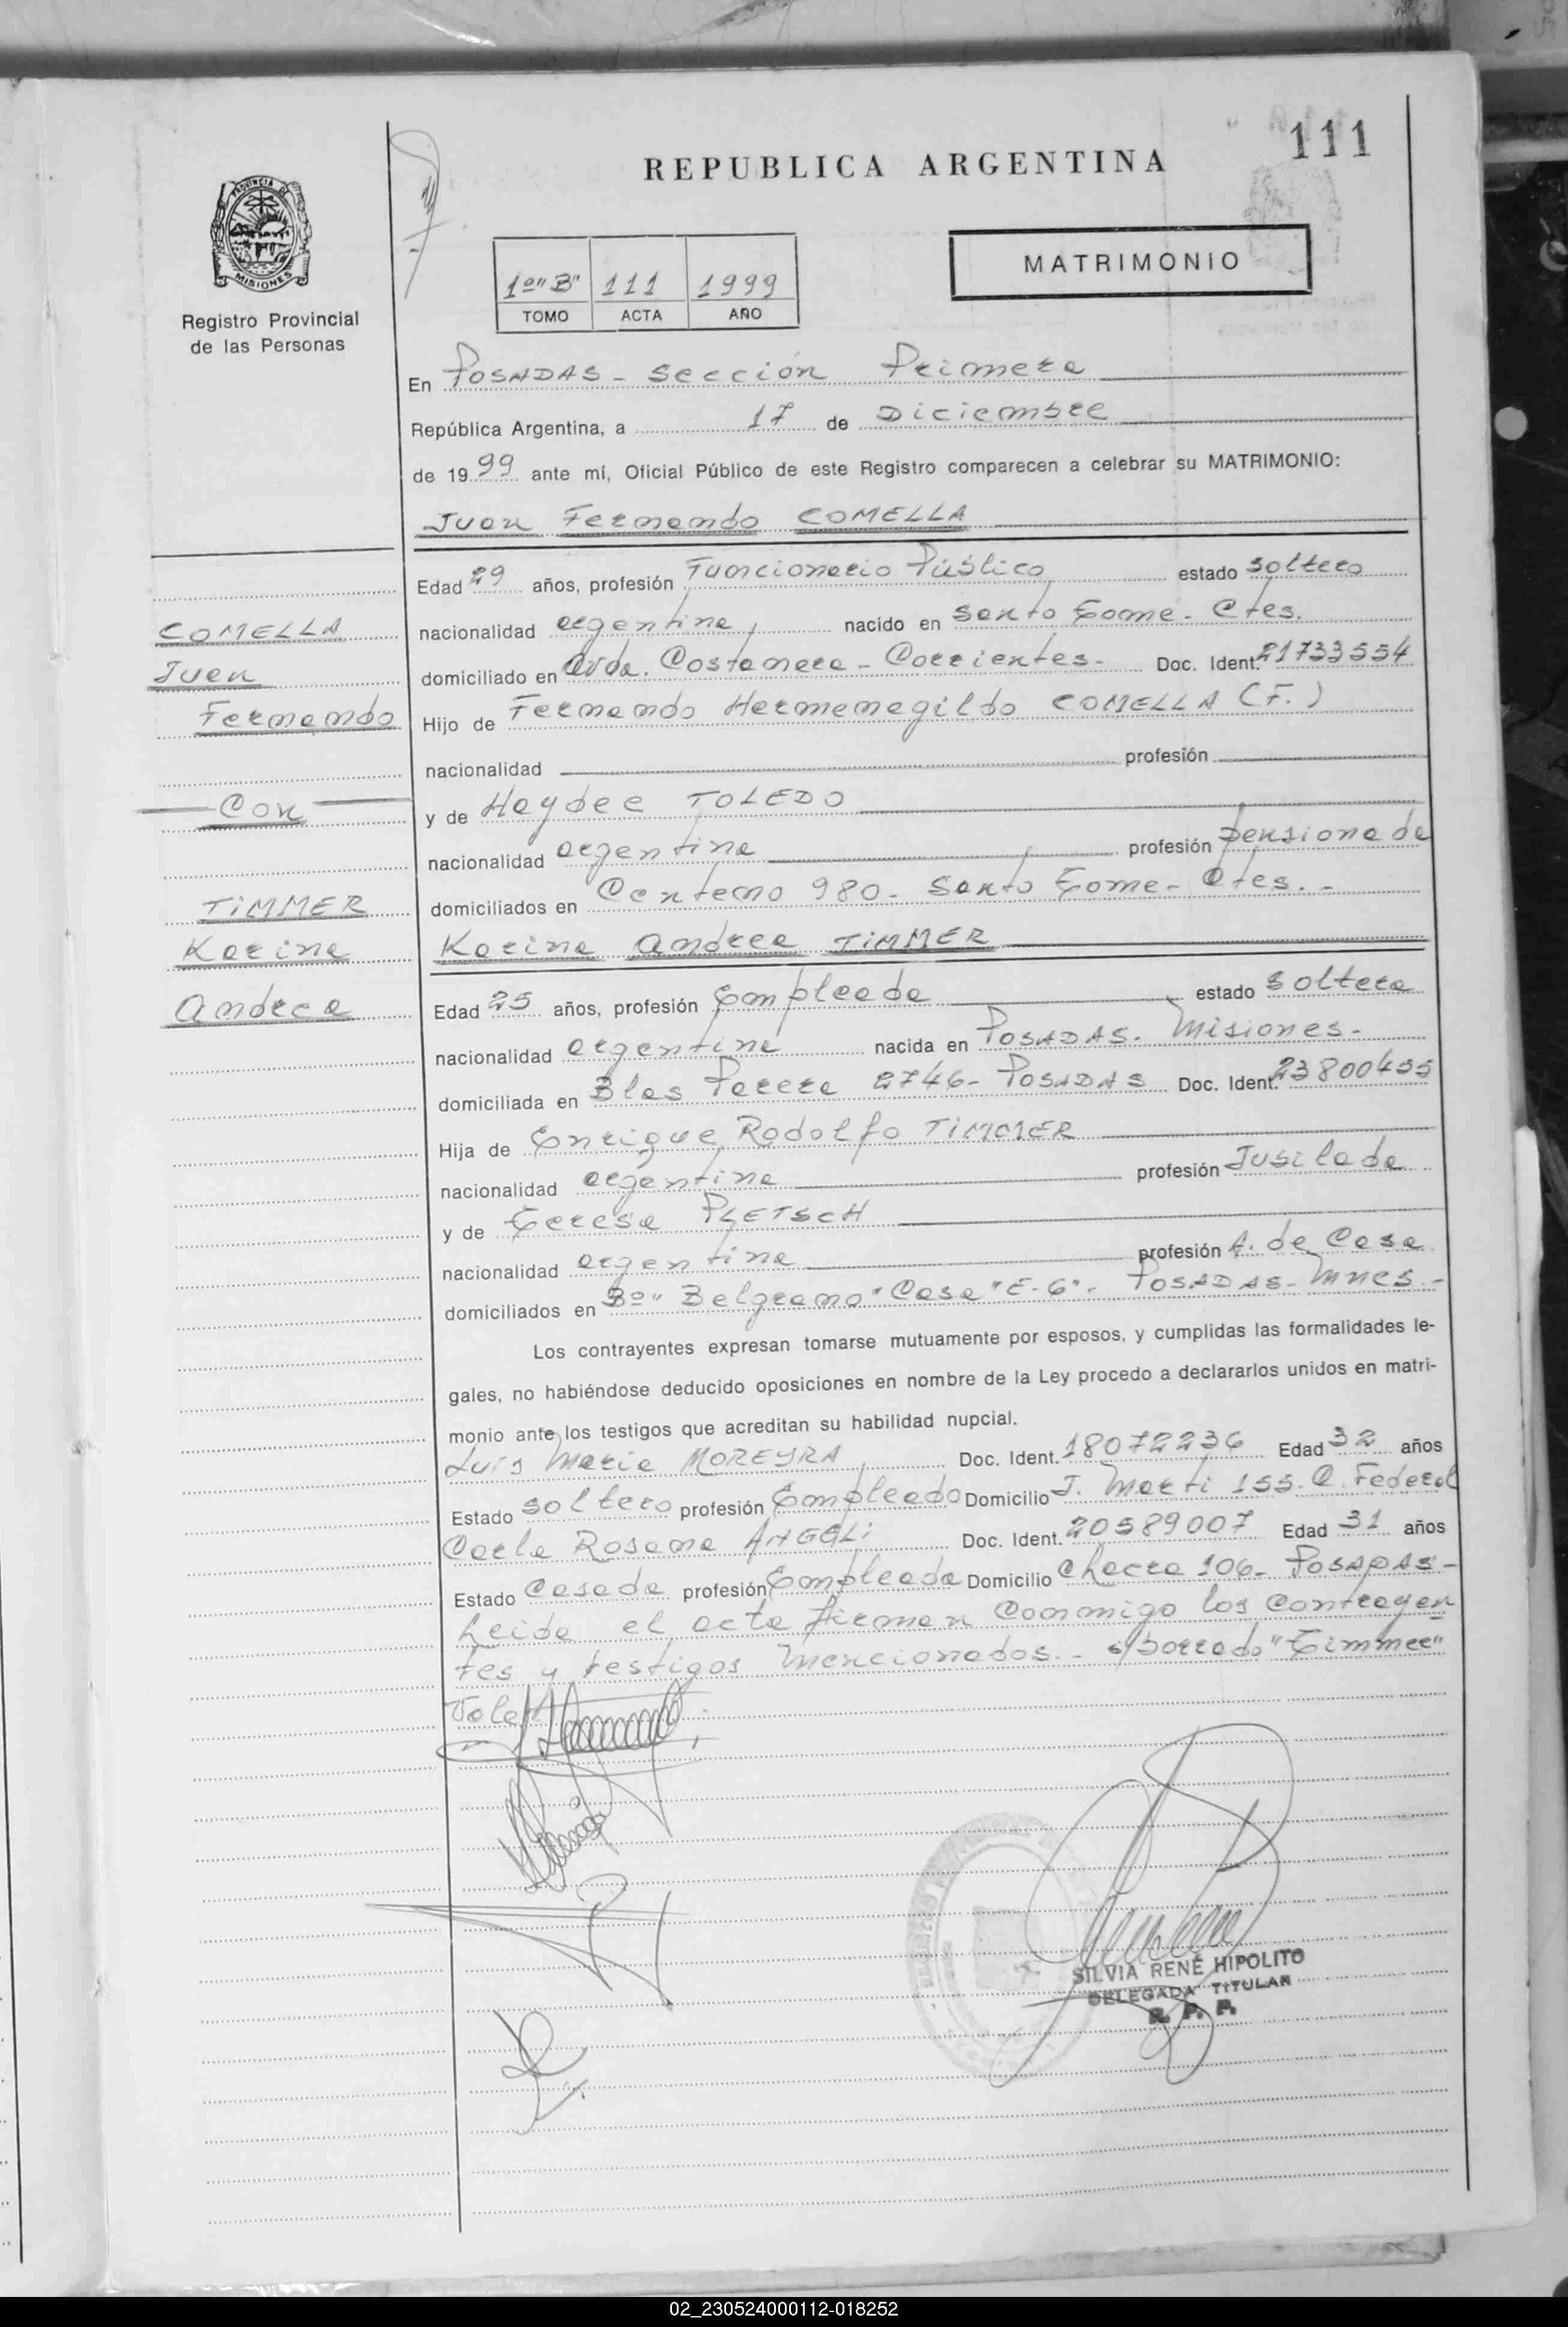 111
REPUBLICA ARGENTINA
PROVINCIA DE
MISIONES
Registro Provincial
de las Personas
1º "B" 111 1999
TOMO ACTA AÑO
MATRIMONIO
En POSADAS - Sección Primera
República Argentina, a 17 de Diciembre
de 1999 ante mí, Oficial Público de este Registro comparecen a celebrar su MATRIMONIO:
Juan Fernando COMELLA
Edad 29 años, profesión Funcionario Público estado soltero
COMELLA
nacionalidad argentina nacido en Santo Tomé - Ctes.
Juan
domiciliado en Avda. Costanera - Corrientes - Doc. Ident. 21733554
Fernando
Hijo de Fernando Hermenegildo COMELLA (F.)
nacionalidad profesión
Con
y de Haydee TOLEDO
nacionalidad argentina profesión pensionada
TIMMER
domiciliados en Centeno 980 - Santo Tome - Ctes. -
Karina
Karina Andrea TIMMER
Andrea
Edad 25 años, profesión Empleada estado soltera
nacionalidad argentina nacida en POSADAS. Misiones -
domiciliada en Blas Parera 2746 - POSADAS Doc. Ident. 23800455
Hija de Enrique Rodolfo TIMMER
nacionalidad argentina profesión Jubilada
y de Teresa PLETSCH
nacionalidad argentina profesión A. de Casa
domiciliados en Bº "Belgrano" Casa "E-6" - POSADAS - Mnes. -
Los contrayentes expresan tomarse mutuamente por esposos, y cumplidas las formalidades le-
gales, no habiéndose deducido oposiciones en nombre de la Ley procedo a declararlos unidos en matri-
monio ante los testigos que acreditan su habilidad nupcial.
Luis Maria MOREYRA Doc. Ident. 18072236 Edad 32 años
Estado soltero profesión Empleado Domicilio J. Marti 155 - C. Federal
Carla Rosana ANGELI Doc. Ident. 20589007 Edad 31 años
Estado Casada profesión Empleada Domicilio Chacra 106 - POSADAS -
Leida el acta firman conmigo los contrayen
tes y testigos mencionados. - s/borrado "Timmer"
Vale
SILVIA RENÉ HIPOLITO
DELEGADA TITULAR
R. P. P.
02_230524000112-018252